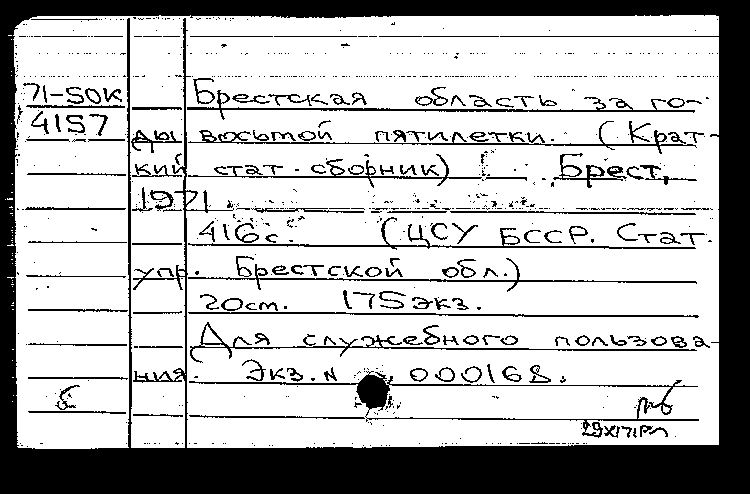 71-50К Брестская область за го-
4157 ды восьмой пятилетки. (Крат-
кий стат. сборник) Брест,
1971.
416с. (ЦСУ БССР. Стат.
упр. Брестской обл.)
20см. 175экз.
Для служебного пользова-
ния. Экз. N 000168.